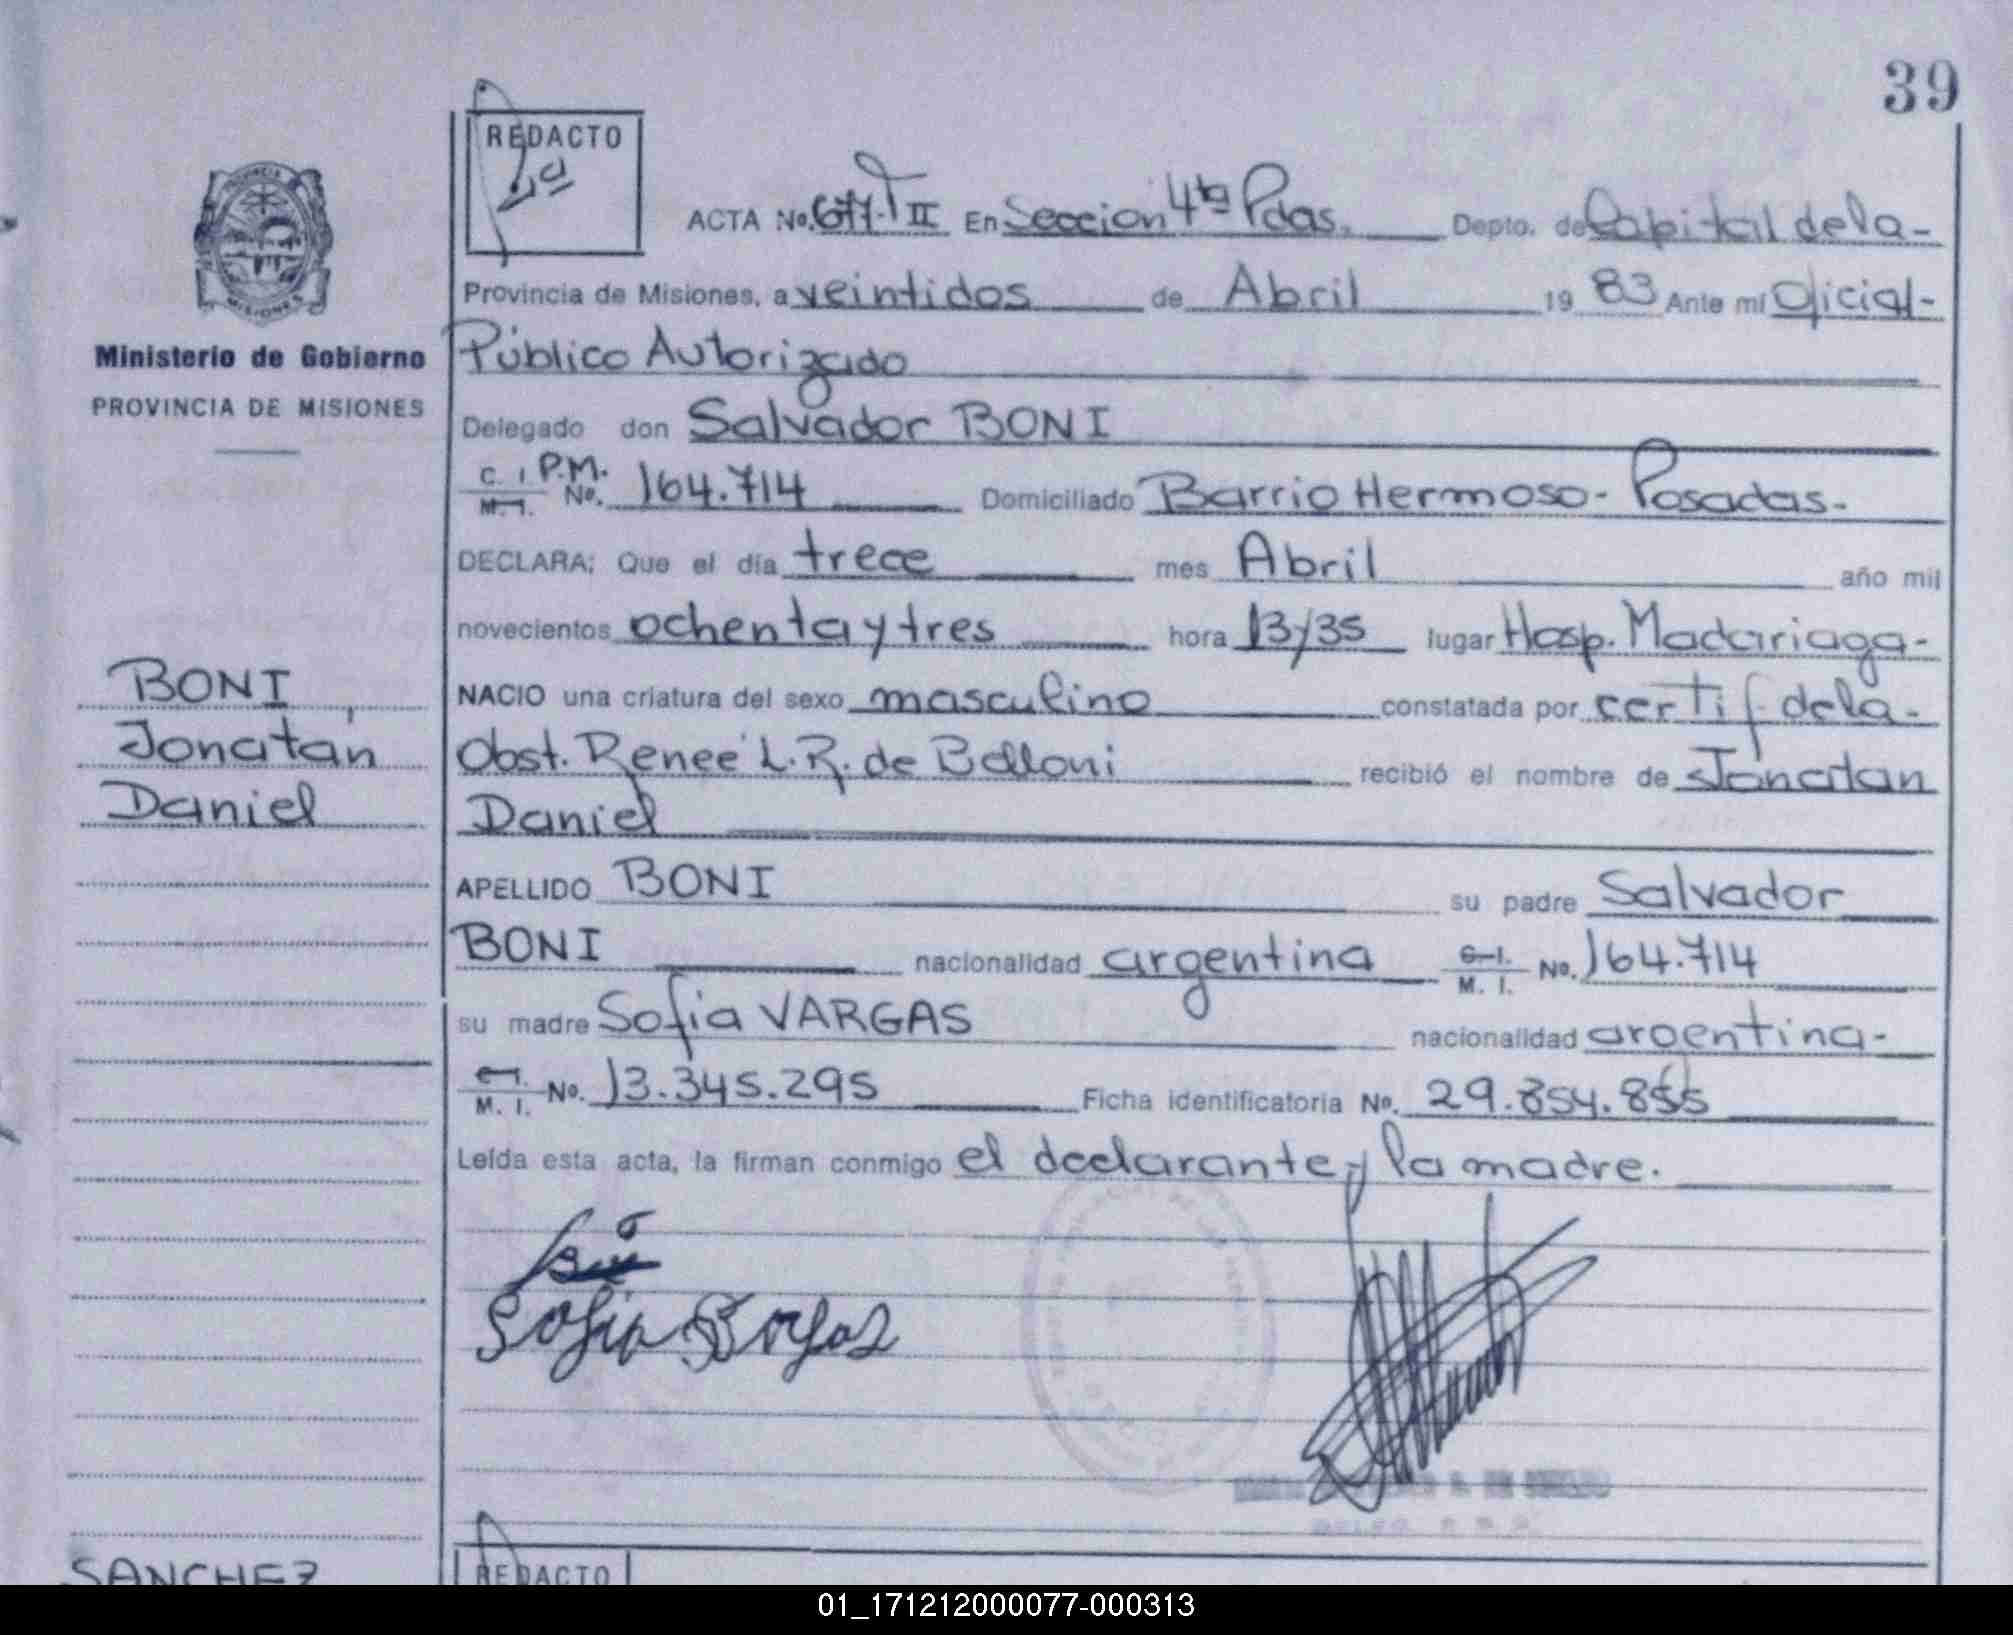 39
REDACTO
2ª
ACTA No. 677-T II En Seccion 4ta Pdas. Depto. de Capital de la-
Provincia de Misiones, a veintidos de Abril 19 83 Ante mí Oficial-
Ministerio de Gobierno
PROVINCIA DE MISIONES
Público Autorizado
Delegado don Salvador BONI
C. I. P.M.
M. I. No. 164.714 Domiciliado Barrio Hermoso- Posadas.
DECLARA: Que el día trece mes Abril año mil
novecientos ochenta y tres hora 13/35 lugar Hosp. Madariaga-
BONI,
Jonatan
Daniel
NACIO una criatura del sexo masculino constatada por certif. de la-
Obst. Renee L. R. de Belloni recibió el nombre de Jonatan
Daniel
APELLIDO BONI su padre Salvador
BONI nacionalidad argentina C. I. M. I. No. 164.714
su madre Sofia VARGAS nacionalidad argentina-
C. I. M. I. No. 13.345.295 Ficha identificatoria No. 29.854.855
Leída esta acta, la firman conmigo el declarante y la madre.
Sofia Borgas
SANCHEZ
REDACTO
01_171212000077-000313